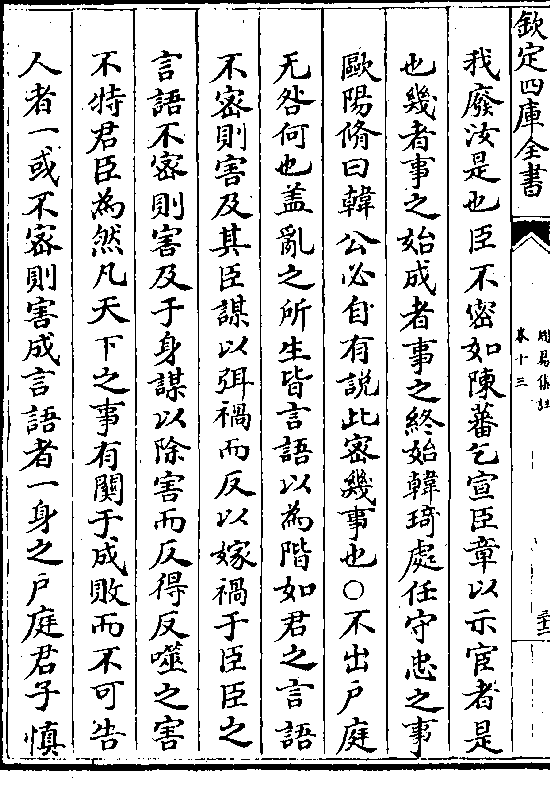 欽定四庫全書
周易集註
卷十三
三十二
我廢汝是也臣不密如陳蕃乞宣臣章以示宦者是
也幾者事之始成者事之終始韓琦處任守忠之事
歐陽脩曰韓公必自有說此密幾事也○不出戶庭
无咎何也盖亂之所生皆言語以為階如君之言語
不密則害及其臣謀以弭禍而反以嫁禍于臣臣之
言語不密則害及于身謀以除害而反得反噬之害
不特君臣為然凡天下之事有關于成敗而不可告
人者一或不密則害成言語者一身之戶庭君子慎